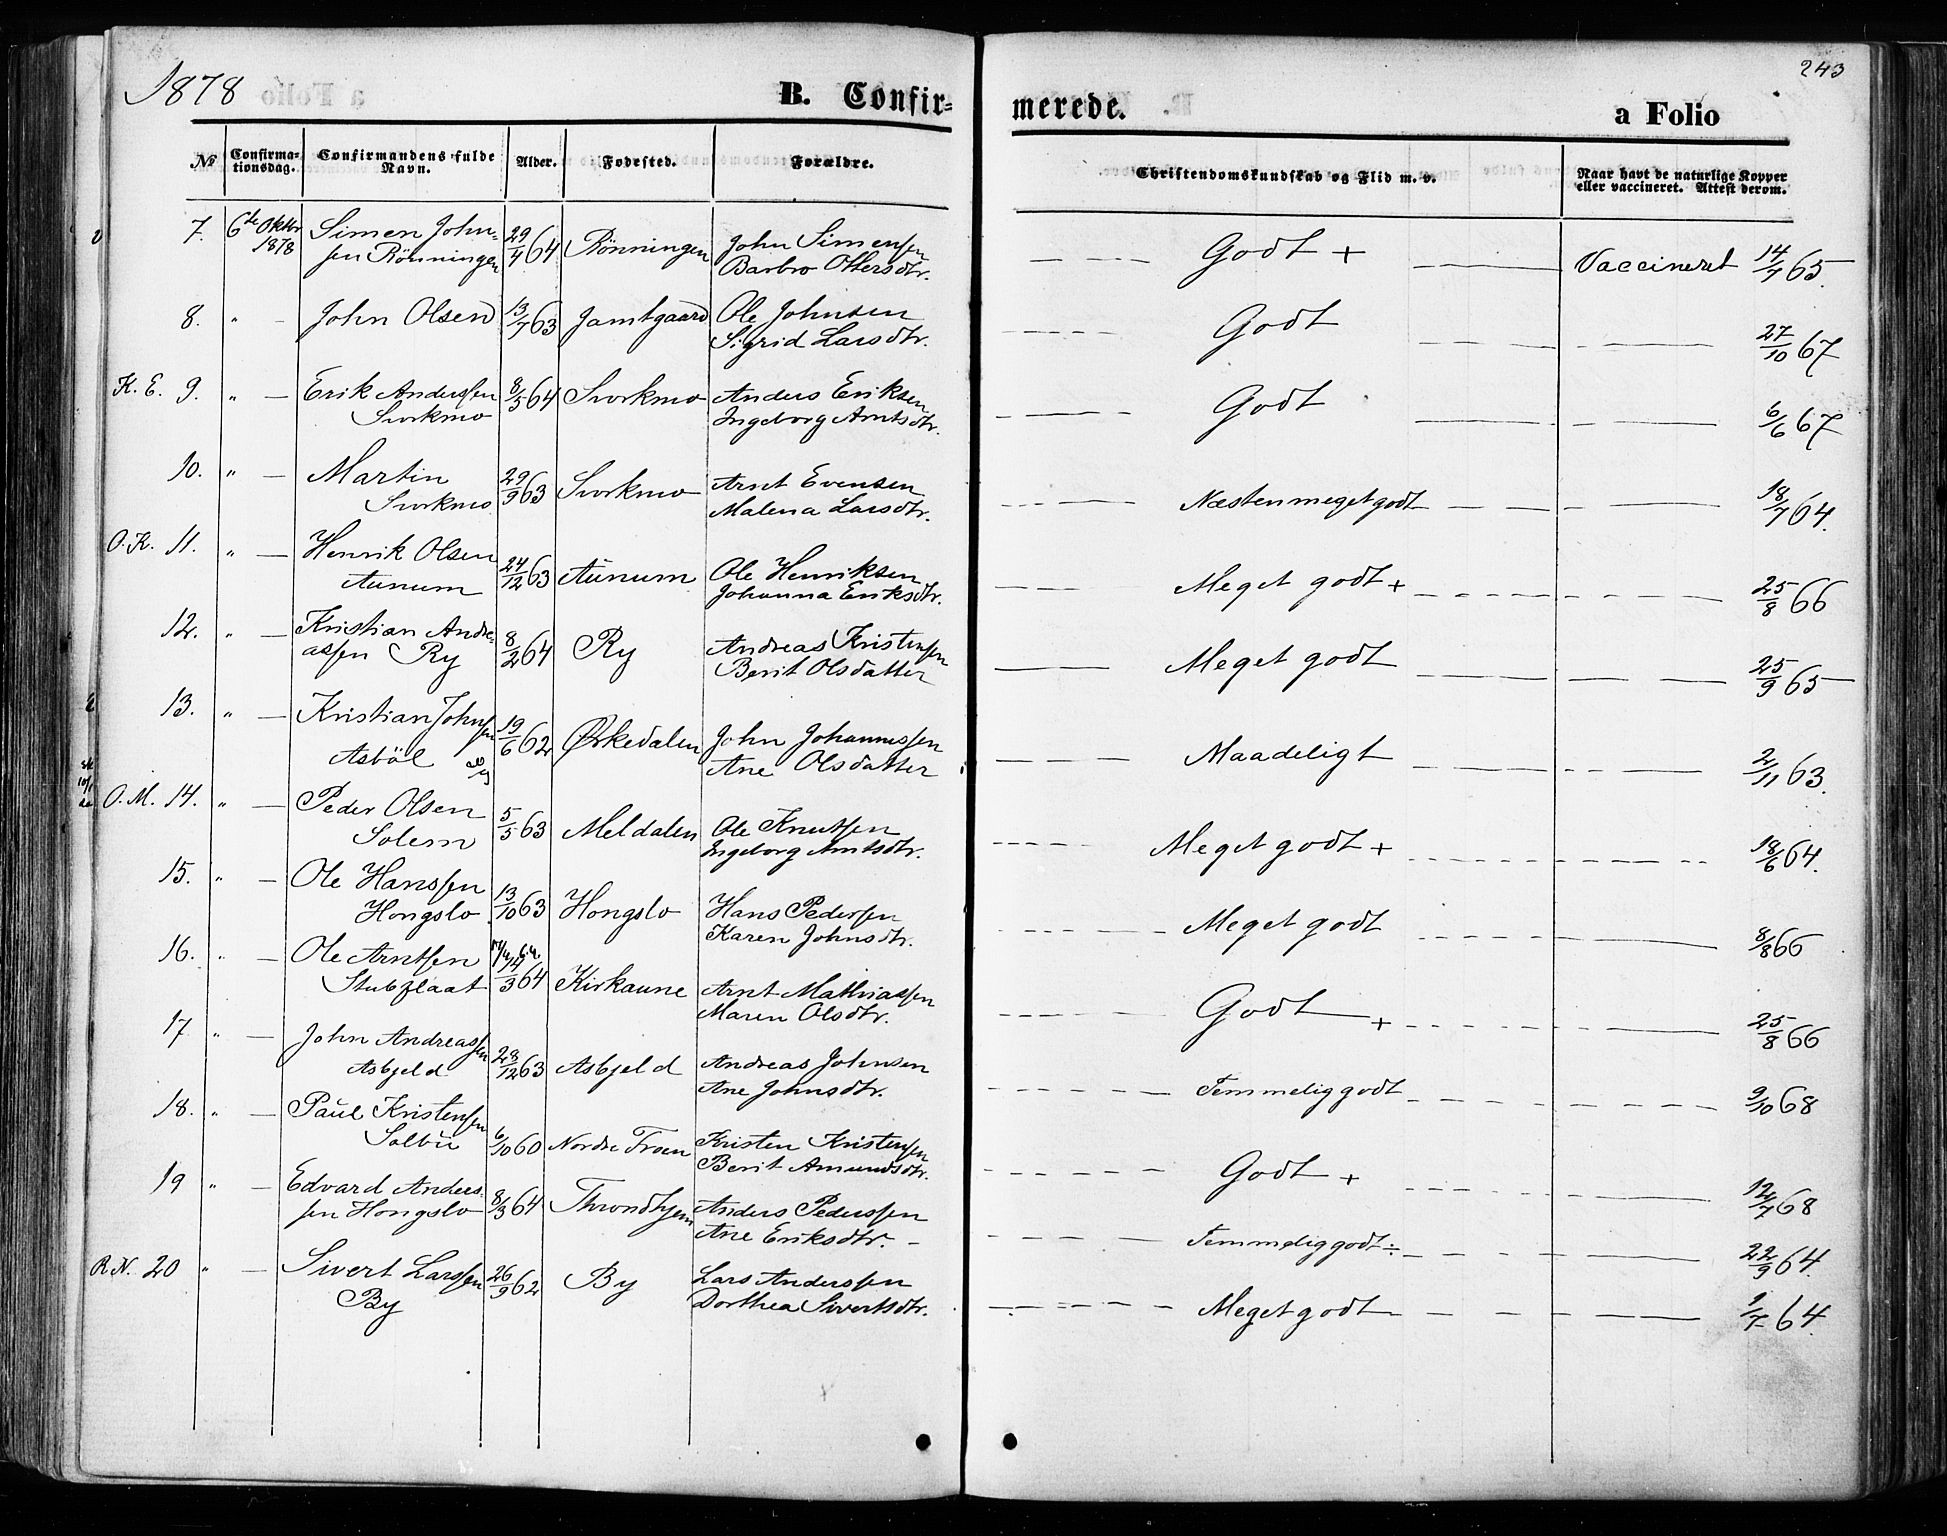 1878 B. Confirmerede. a Folio 243
№ Confirmationsdag. Confirmandens fulde Navn. Alder. Fødested. Forældre. Christendomskundskab og Flid m. v. Naar havt de naturlige Kopper eller vaccineret. Attest derom.
7. 6te Oktbr 1878 Simen Johnsen Rönningen 29/4 64 Rönningen John Simensen Barbro Ottersdtr. Godt + Vaccineret 14/7 65
8. " John Olsen 13/7 63 Jamtgaard Ole Johnsen Sigrid Larsdtr. Godt 27/10 67
K. E. 9. " Erik Anderssen Svorkmo 8/5 64 Svorkmo Anders Eriksen Ingeborg Arntsdtr. Godt 6/6 67
10. " Martin Svorkmo 29/9 63 Svorkmo Arnt Evensen Malena Larsdtr. Næsten meget godt 18/7 64.
O. K. 11. " Henrik Olsen Aunum 24/12 63 Aunum Ole Henriksen Johanna Eriksdtr. Meget godt + 25/8 66
12. " Kristian Andreassen Ry 8/2 64 Ry Andreas Kristensen Berit Olsdatter Meget godt 25/9 65
13. " Kristian Johnsen Asböl 19/6 62 Ørkedalen John Johannessen Ane Olsdatter Maadeligt 2/11 63.
O. M. 14. " Peder Olsen Solem 5/5 63 Meldalen Ole Knutsen Ingeborg Arntsdtr. Meget godt + 18/6 64.
15. " Ole Hanssen Hongslo 13/10 63 Hongslo Hans Pedersen Karen Johnsdtr. Meget godt 8/8 66
16. " Ole Arntsen Stubflaat 14/3 64 Kirkaune Arnt Mathiassen Maren Olsdtr. Godt + 25/8 66
17 " John Andreassen Asbjeld 28/12 63 Asbjeld Andreas Johnsen Ane Johnsdtr. Temmelig godt 9/10 68
18. " Paul Kristensen Solbu 6/10 60 Nordre Troen Kristen Kristensen Berit Amundsdtr. Godt + 12/7 68
19 " Edvard Anderssen Hongslo 8/3 64 Throndhjem Anders Pederssen Ane Eriksdtr. Temmelig godt ÷ 22/9 64.
R N. 20 " Sivert Larssen By 26/9 62 By Lars Anderssen Dorthea Sivertsdtr. Meget godt 1/7 64.